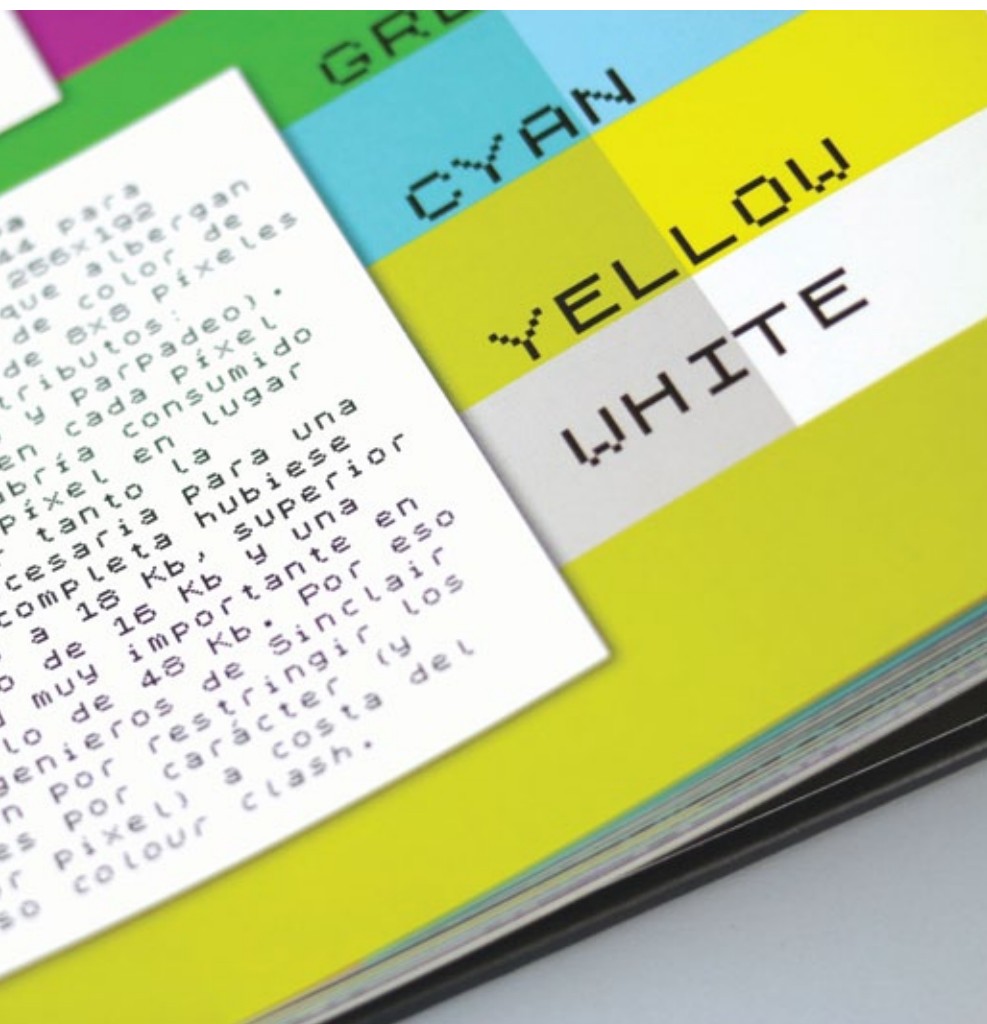 GRE
CYAN
YELLOW
WHITE
44 para
256x192
que albergan
de color de
de 8x8 píxeles
tributos:
y parpadeo).
en cada píxel
abría consumido
píxel en lugar
tanto la
cesaria para una
completa hubiese
a 18 Kb, superior
o de 16 Kb y una
muy importante en
lo de 48 Kb. Por eso
genieros de Sinclair
n por restringir los
es por carácter (y
r píxel) a costa del
so colour clash.